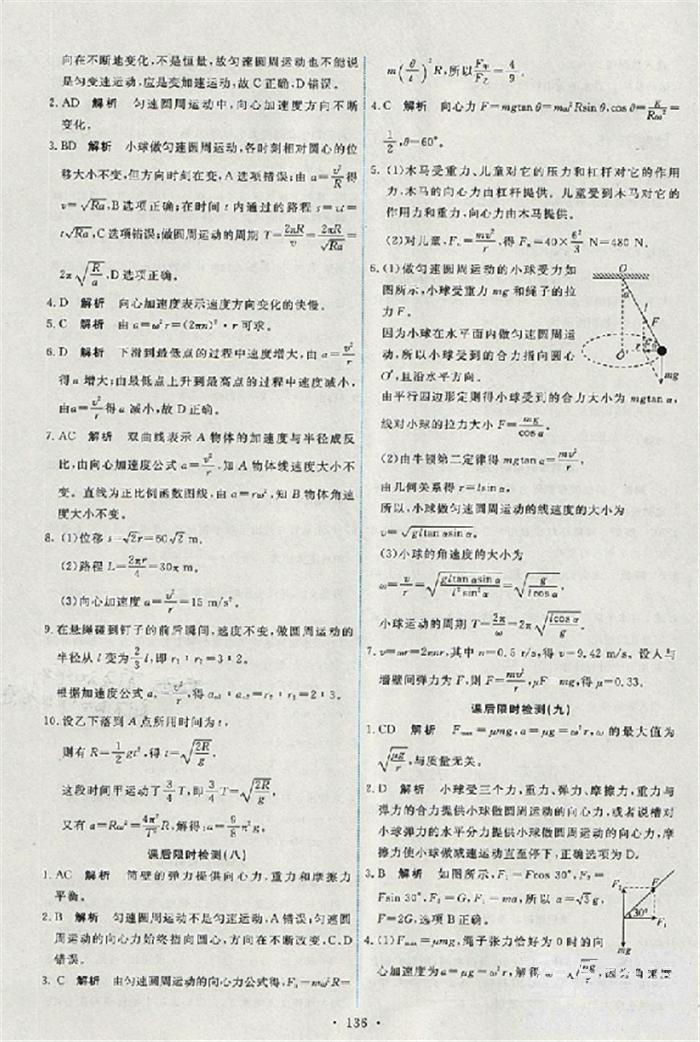 向在不断地变化,不是恒量,故匀速圆周运动也不能说
是匀变速运动,应是变加速运动,故C正确,D错误。
2. AD 解析 匀速圆周运动中,向心加速度方向不断
变化。
3. BD 解析 小球做匀速圆周运动,各时刻相对圆心的位
移大小不变,但方向时刻在变,A选项错误;由a=v²/R得
v=√Ra,B选项正确;在时间t内通过的路程s=vt=
t√Ra,C选项错误;做圆周运动的周期T=2πR/v=2πR/√Ra=
2π√(R/a),D选项正确。
4. D 解析 向心加速度表示速度方向变化的快慢。
5. C 解析 由a=ω²r=(2πn)²·r可求。
6. D 解析 下滑到最低点的过程中速度增大,由a=v²/r
得a增大;由最低点上升到最高点的过程中速度减小,
由a=v²/r得a减小,故D正确。
7. AC 解析 双曲线表示A物体的加速度与半径成反
比,由向心加速度公式a=v²/r,知A物体线速度大小不
变。直线为正比例函数图线,由a=rω²,知B物体角速
度大小不变。
8. (1)位移s=√2r=60√2 m。
(2)路程L=2πr/4=30π m。
(3)向心加速度a=v²/r=15 m/s²。
9. 在悬绳碰到钉子的前后瞬间,速度不变,做圆周运动的
半径从l变为2/3 l,即r₁:r₂=3:2。
根据加速度公式a=v²/r,得a₁:a₂=r₂:r₁=2:3。
10. 设乙下落到A点所用时间为t,
则有R=1/2 gt²,得t=√(2R/g),
这段时间甲运动了3/4 T,即3/4 T=√(2R/g),
又有a=Rω²=4π²/T² R,解得:a=9/8 π²g。
课后限时检测(八)
1. AC 解析 筒壁的弹力提供向心力,重力和摩擦力
平衡。
2. B 解析 匀速圆周运动不是匀速运动,A错误;匀速圆
周运动的向心力始终指向圆心,方向在不断改变,C、D
错误。
3. C 解析 由匀速圆周运动的向心力公式得,Fₙ=mω²R=
m(θ/t)²R,所以F甲/F乙=4/9。
4. C 解析 向心力F=mgtan θ=mω²Rsin θ,cos θ=g/Rω²=
1/2,θ=60°。
5. (1)木马受重力、儿童对它的压力和杠杆对它的作用
力,木马的向心力由杠杆提供。儿童受到木马对它的
作用力和重力,向心力由木马提供。
(2)对儿童,Fₙ=mv²/r,得Fₙ=40×6²/3 N=480 N.
6. (1)做匀速圆周运动的小球受力如
图所示,小球受重力mg和绳子的拉
力F。
因为小球在水平面内做匀速圆周运
动,所以小球受到的合力指向圆心
O′,且沿水平方向。
由平行四边形定则得小球受到的合力大小为mgtan α,
线对小球的拉力大小F=mg/cos α。
(2)由牛顿第二定律得mgtan α=mv²/r,
由几何关系得r=lsin α。
所以,小球做匀速圆周运动的线速度的大小为
v=√(gltan αsin α)。
(3)小球的角速度的大小为
ω=v/r=√(gltan αsin α/l²sin²α)=√(g/lcos α)。
小球运动的周期T=2π/ω=2π√(lcos α/g)。
7. v=ωr=2πnr,其中n=0.5 r/s,得v=9.42 m/s。设人与
墙壁间弹力为F,则F=mv²/r,μF=mg,得μ=0.33。
课后限时检测(九)
1. CD 解析 Fmax=μmg,a=μg=ω²r,ω的最大值为
√(μg/r),与质量无关。
2. D 解析 小球受三个力,重力、弹力、摩擦力,重力与
弹力的合力提供小球做圆周运动的向心力,或者说槽对
小球弹力的水平分力提供小球做圆周运动的向心力,摩
擦力使小球做减速运动直至停下,正确选项为D。
3. B 解析 如图所示,F₁=Fcos 30°,F₂=
Fsin 30°,F₂=G,F₁=ma,所以a=√3g,
F=2G,选项B正确。
4. (1)Fmax=μmg,绳子张力恰好为0时的向
心加速度为a=μg=ω²r,解得
O
α
l
F
r
O′
mg
F₂
F
30°
F₁
mg
· 136 ·